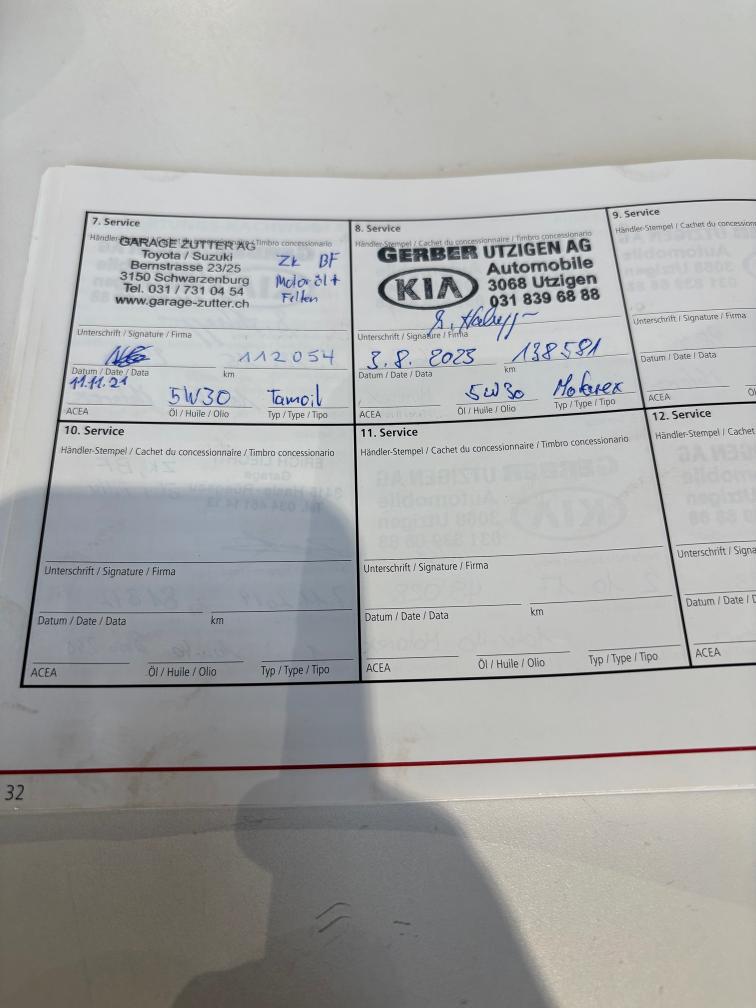 7. Service
Händler- Timbro concessionario
GARAGE ZUTTER AG
Toyota / Suzuki
Bernstrasse 23/25
3150 Schwarzenburg
Tel. 031 / 731 04 54
www.garage-zutter.ch
Zk BF
Motoröl +
Filter
Unterschrift / Signature / Firma
112054
Datum / Date / Data km
11.11.21
5W30 Tamoil
ACEA Öl / Huile / Olio Typ / Type / Tipo
8. Service
Händler-Stempel / Cachet du concessionnaire / Timbro concessionario
GERBER UTZIGEN AG
KIA
Automobile
3068 Utzigen
031 839 68 88
Unterschrift / Signature / Firma
3.8.2023 138581
Datum / Date / Data km
5W30 Motorex
ACEA Öl / Huile / Olio Typ / Type / Tipo
9. Service
Händler-Stempel / Cachet du concession
Unterschrift / Signature / Firma
Datum / Date / Data
ACEA
10. Service
Händler-Stempel / Cachet du concessionnaire / Timbro concessionario
Unterschrift / Signature / Firma
Datum / Date / Data km
ACEA Öl / Huile / Olio Typ / Type / Tipo
11. Service
Händler-Stempel / Cachet du concessionnaire / Timbro concessionario
Unterschrift / Signature / Firma
Datum / Date / Data km
ACEA Öl / Huile / Olio Typ / Type / Tipo
12. Service
Händler-Stempel / Cachet
Unterschrift / Signa
Datum / Date / D
ACEA
32